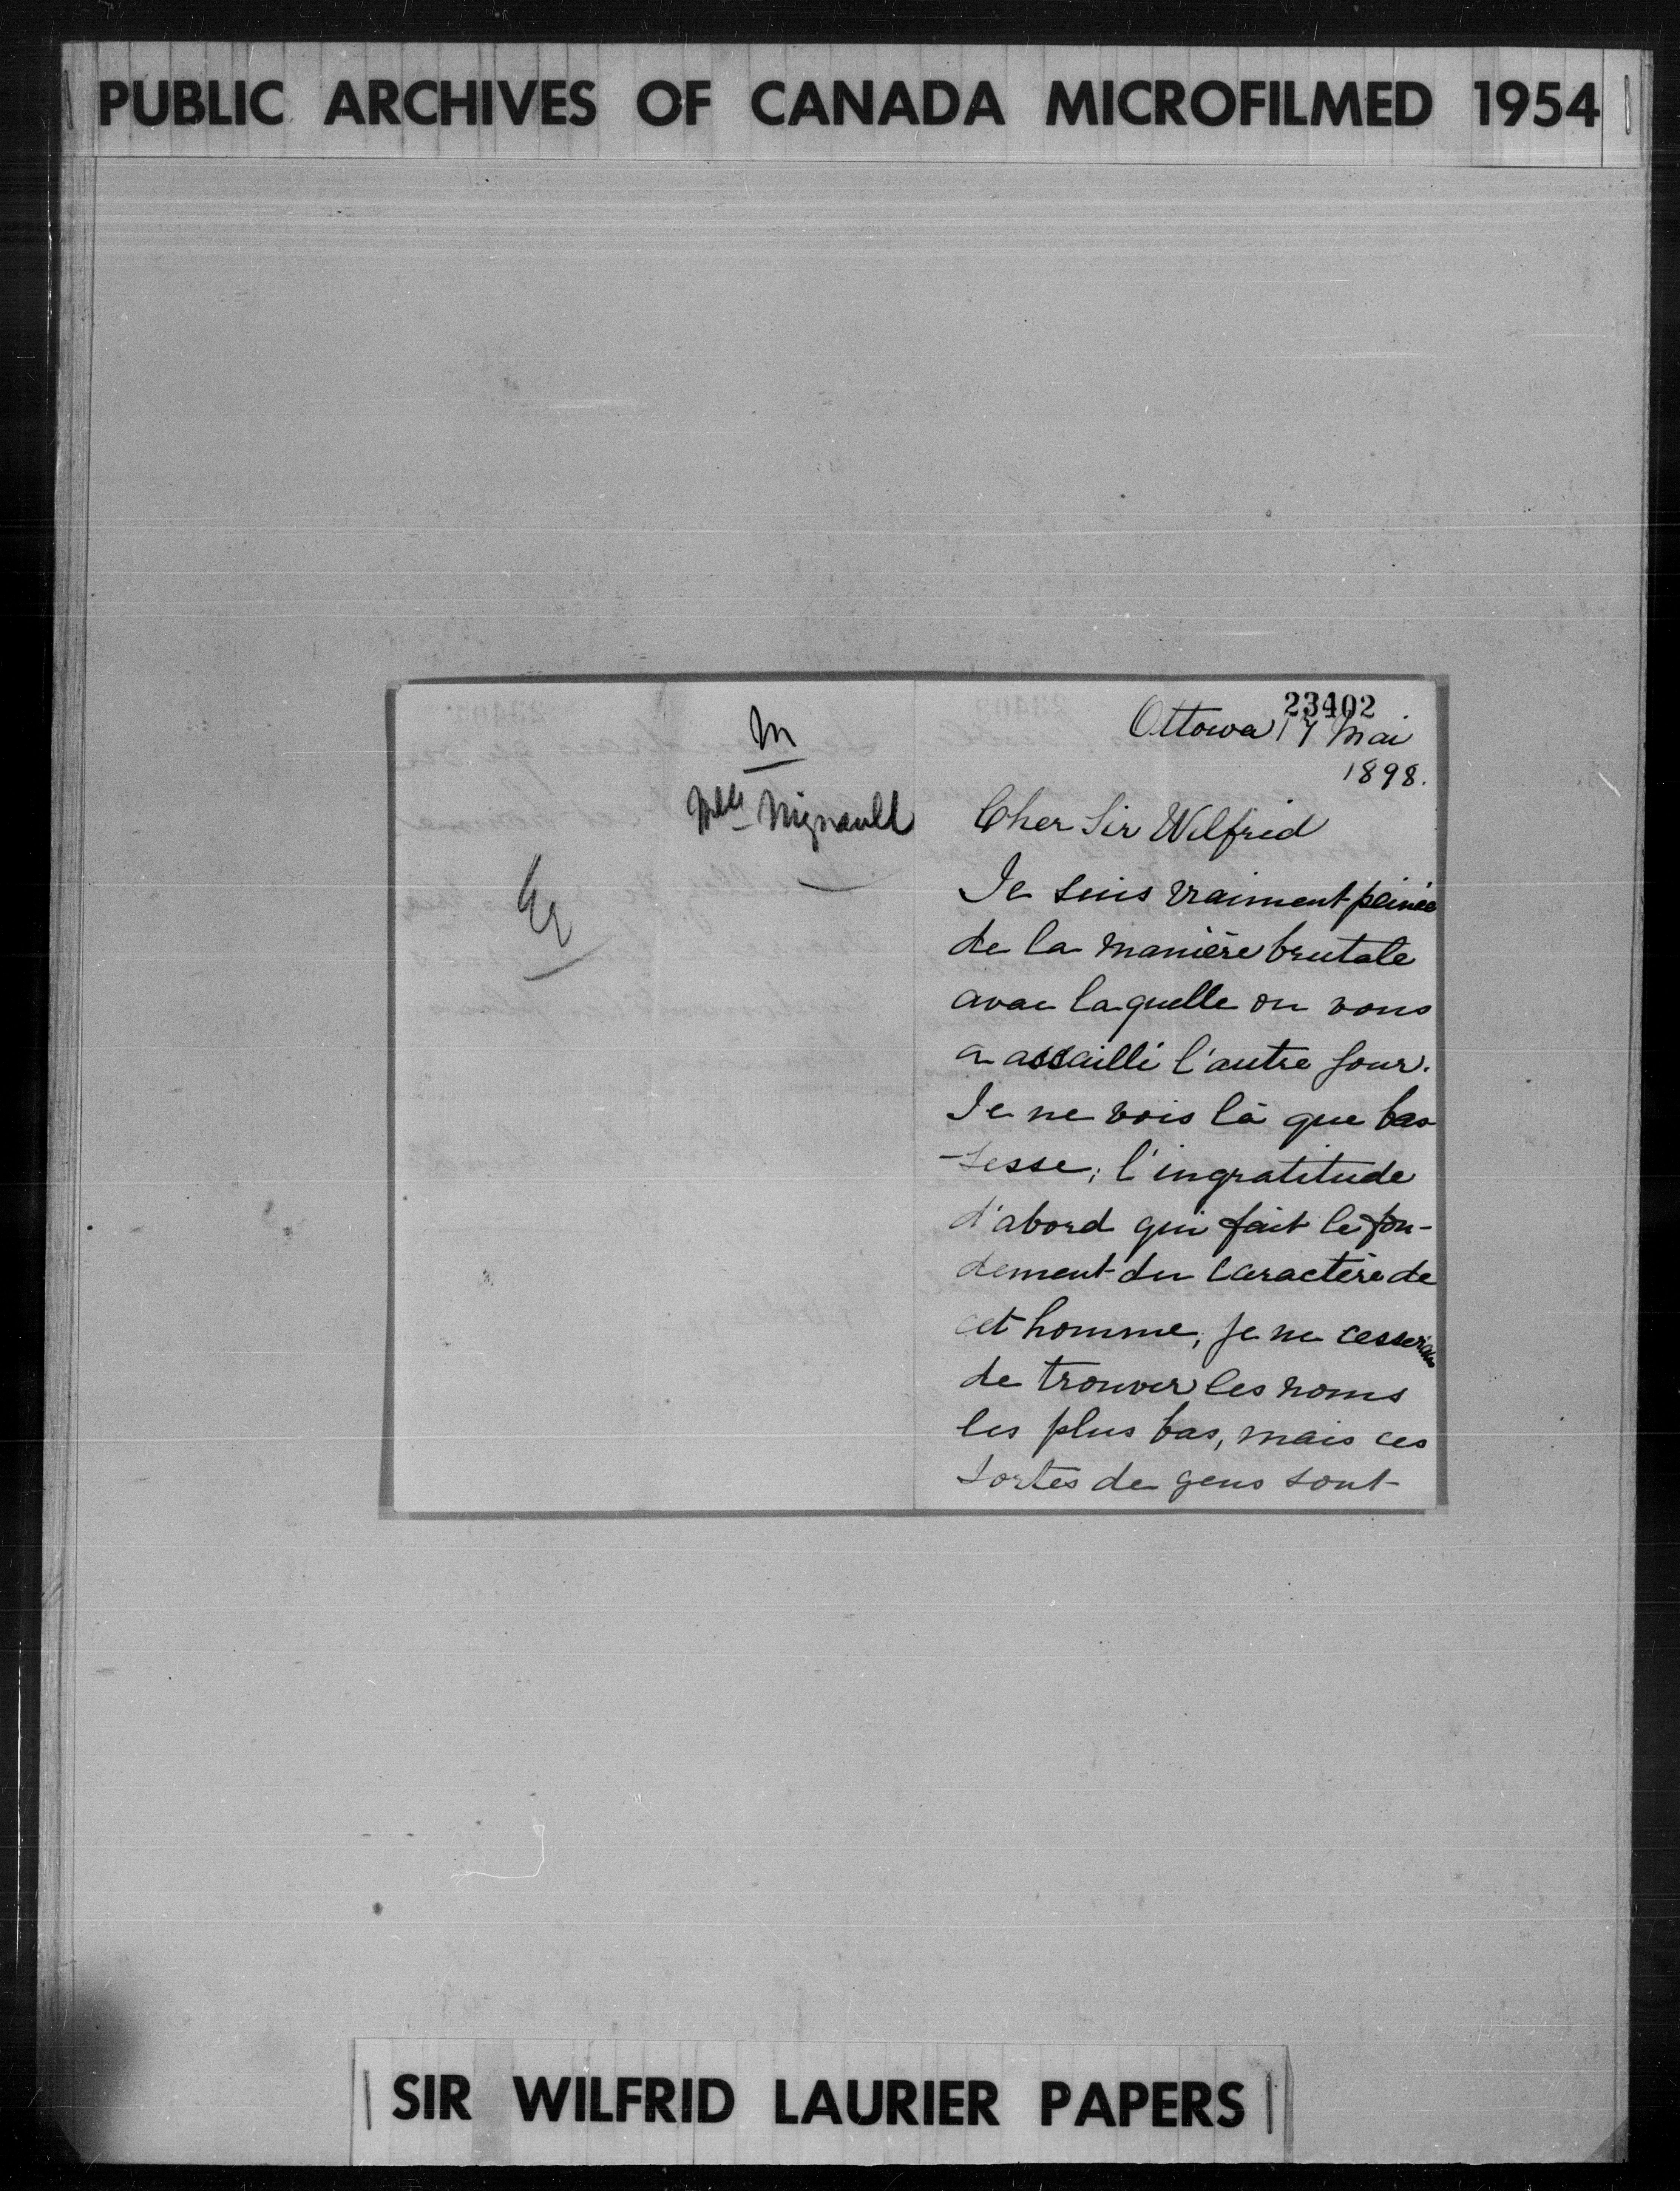 PUBLIC ARCHIVES OF CANADA MICROFILMED 1954
M
Melle Mignault
23402
Ottowa 17 Mai
1898.
Cher Sir Wilfrid
Je suis vraiment peinée
de la manière brutale
avec laquelle on vous
a assailli l'autre jour.
Je ne vois là que bas
-sesse; l'ingratitude
d'abord qui fait le fon-
dement du caractère de
cet homme, je ne cesserais
de trouver les noms
les plus bas, mais ces
sortes de gens sont
SIR WILFRID LAURIER PAPERS